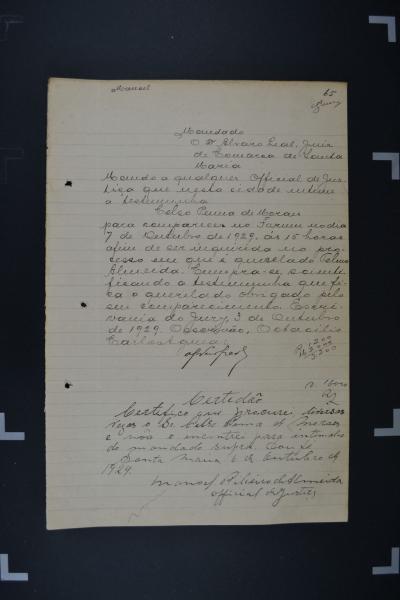 Manoel
65
Mandado
O Dr Alvaro Leal, Juiz
de Comarca de Santa
Maria
Mando a qualquer Official de Jus-
tiça que nesta cidade intime
a testemunha
Celso Penna de Moraes
para comparecer no Forum no dia
7 de Outubro de 1929, ás 15 horas
afim de ser inquirida no pro-
cesso em que é querelado
Almeida. Cumpra-se, scienti-
ficando a testemunha que fi-
ca o querelado obrigado pelo
seu comparecimento. Escri-
vania do Jury, 3 de Outubro
de 1929. O escrivão, Octacilio
Carlos
1200
2000
3.200
Certidão
Certifico que procurei diversas
vezes o Dr. Celso Penna d Moraes
e não o encontrei para intimal-o
do mandado supra. Dou fé
Santa Maria 6 de Outubro d
1929.
Manoel Ribeiro de Almeida
official de Justiça